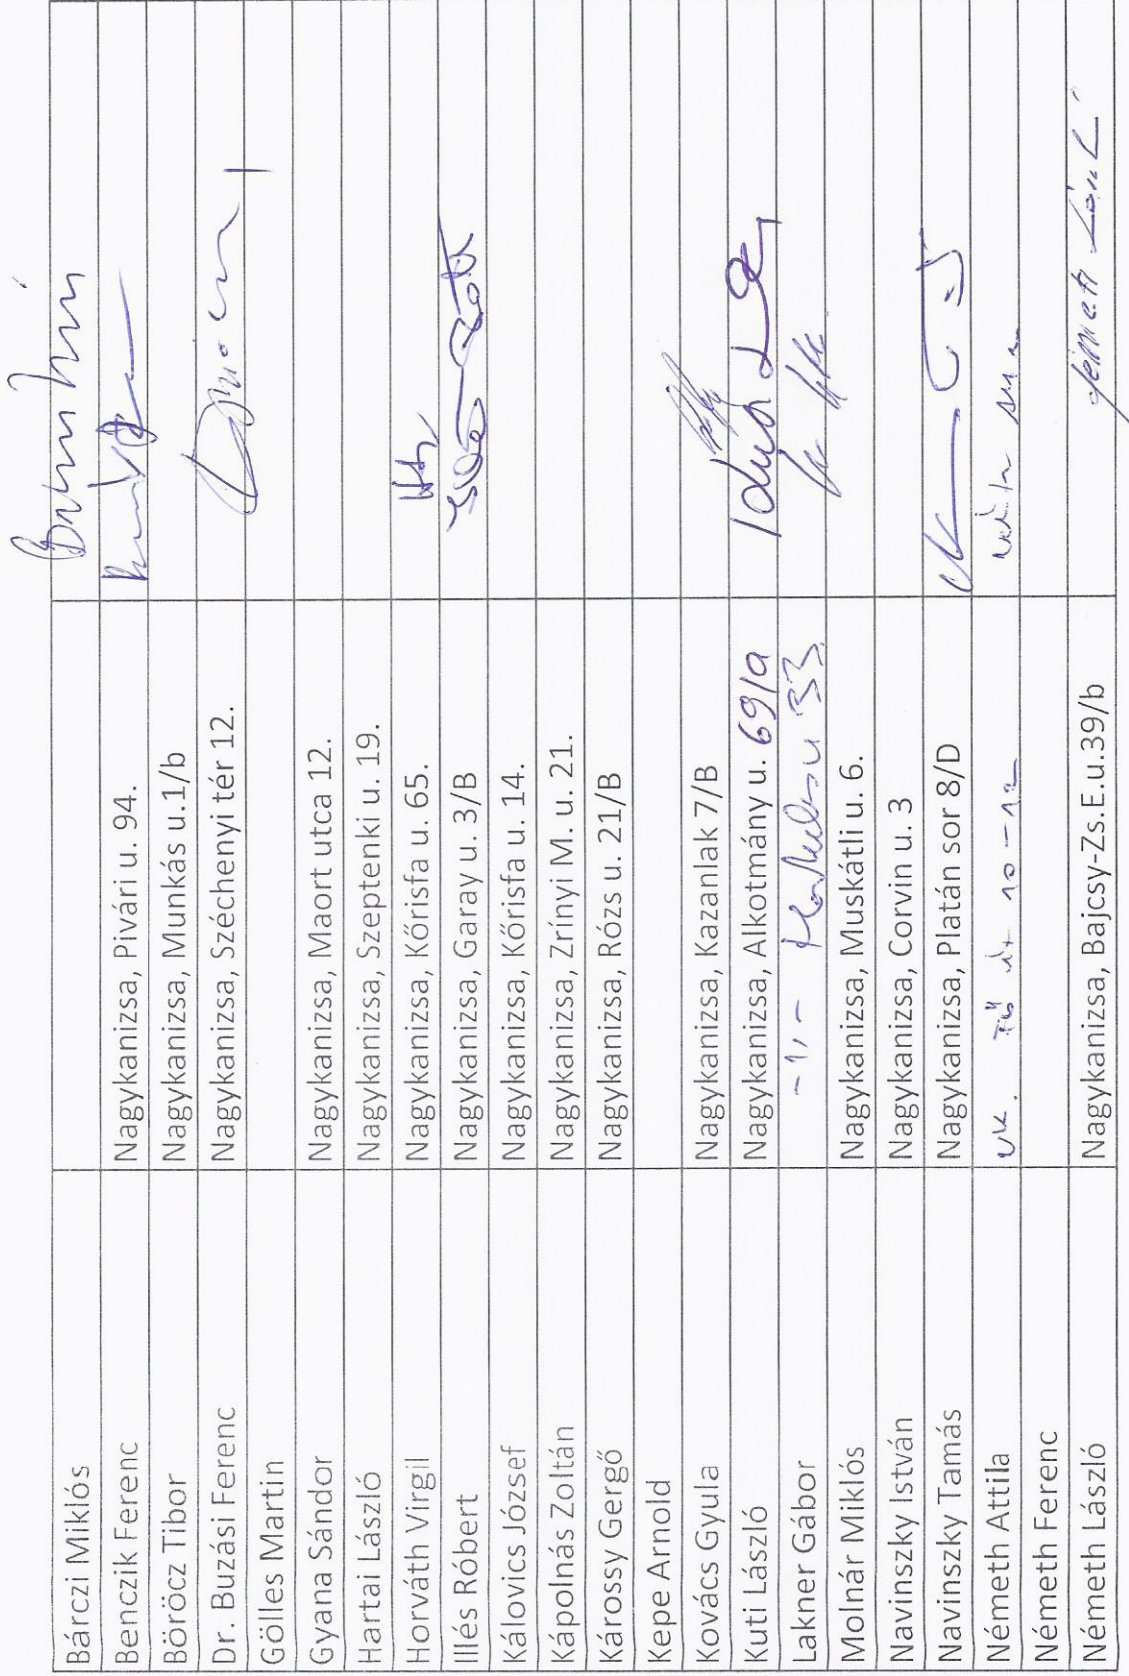 Bárczi Miklós
Benczik Ferenc Nagykanizsa, Pivári u. 94.
Böröcz Tibor Nagykanizsa, Munkás u.1/b
Dr. Buzási Ferenc Nagykanizsa, Széchenyi tér 12.
Gölles Martin
Gyana Sándor Nagykanizsa, Maort utca 12.
Hartai László Nagykanizsa, Szeptenki u. 19.
Horváth Virgil Nagykanizsa, Kőrisfa u. 65.
Illés Róbert Nagykanizsa, Garay u. 3/B
Kálovics József Nagykanizsa, Kőrisfa u. 14.
Kápolnás Zoltán Nagykanizsa, Zrínyi M. u. 21.
Károssy Gergő Nagykanizsa, Rózs u. 21/B
Kepe Arnold
Kovács Gyula Nagykanizsa, Kazanlak 7/B
Kuti László Nagykanizsa, Alkotmány u. 69/a
Lakner Gábor -"- u 33
Molnár Miklós Nagykanizsa, Muskátli u. 6.
Navinszky István Nagykanizsa, Corvin u. 3
Navinszky Tamás Nagykanizsa, Platán sor 8/D
Németh Attila NK. Fő út 10-12
Németh Ferenc
Németh László Nagykanizsa, Bajcsy-Zs.E.u.39/b Németh László